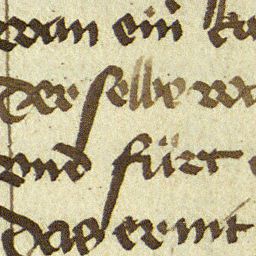 wan ein ka
der selbe wa
vnd fürt
das er mit